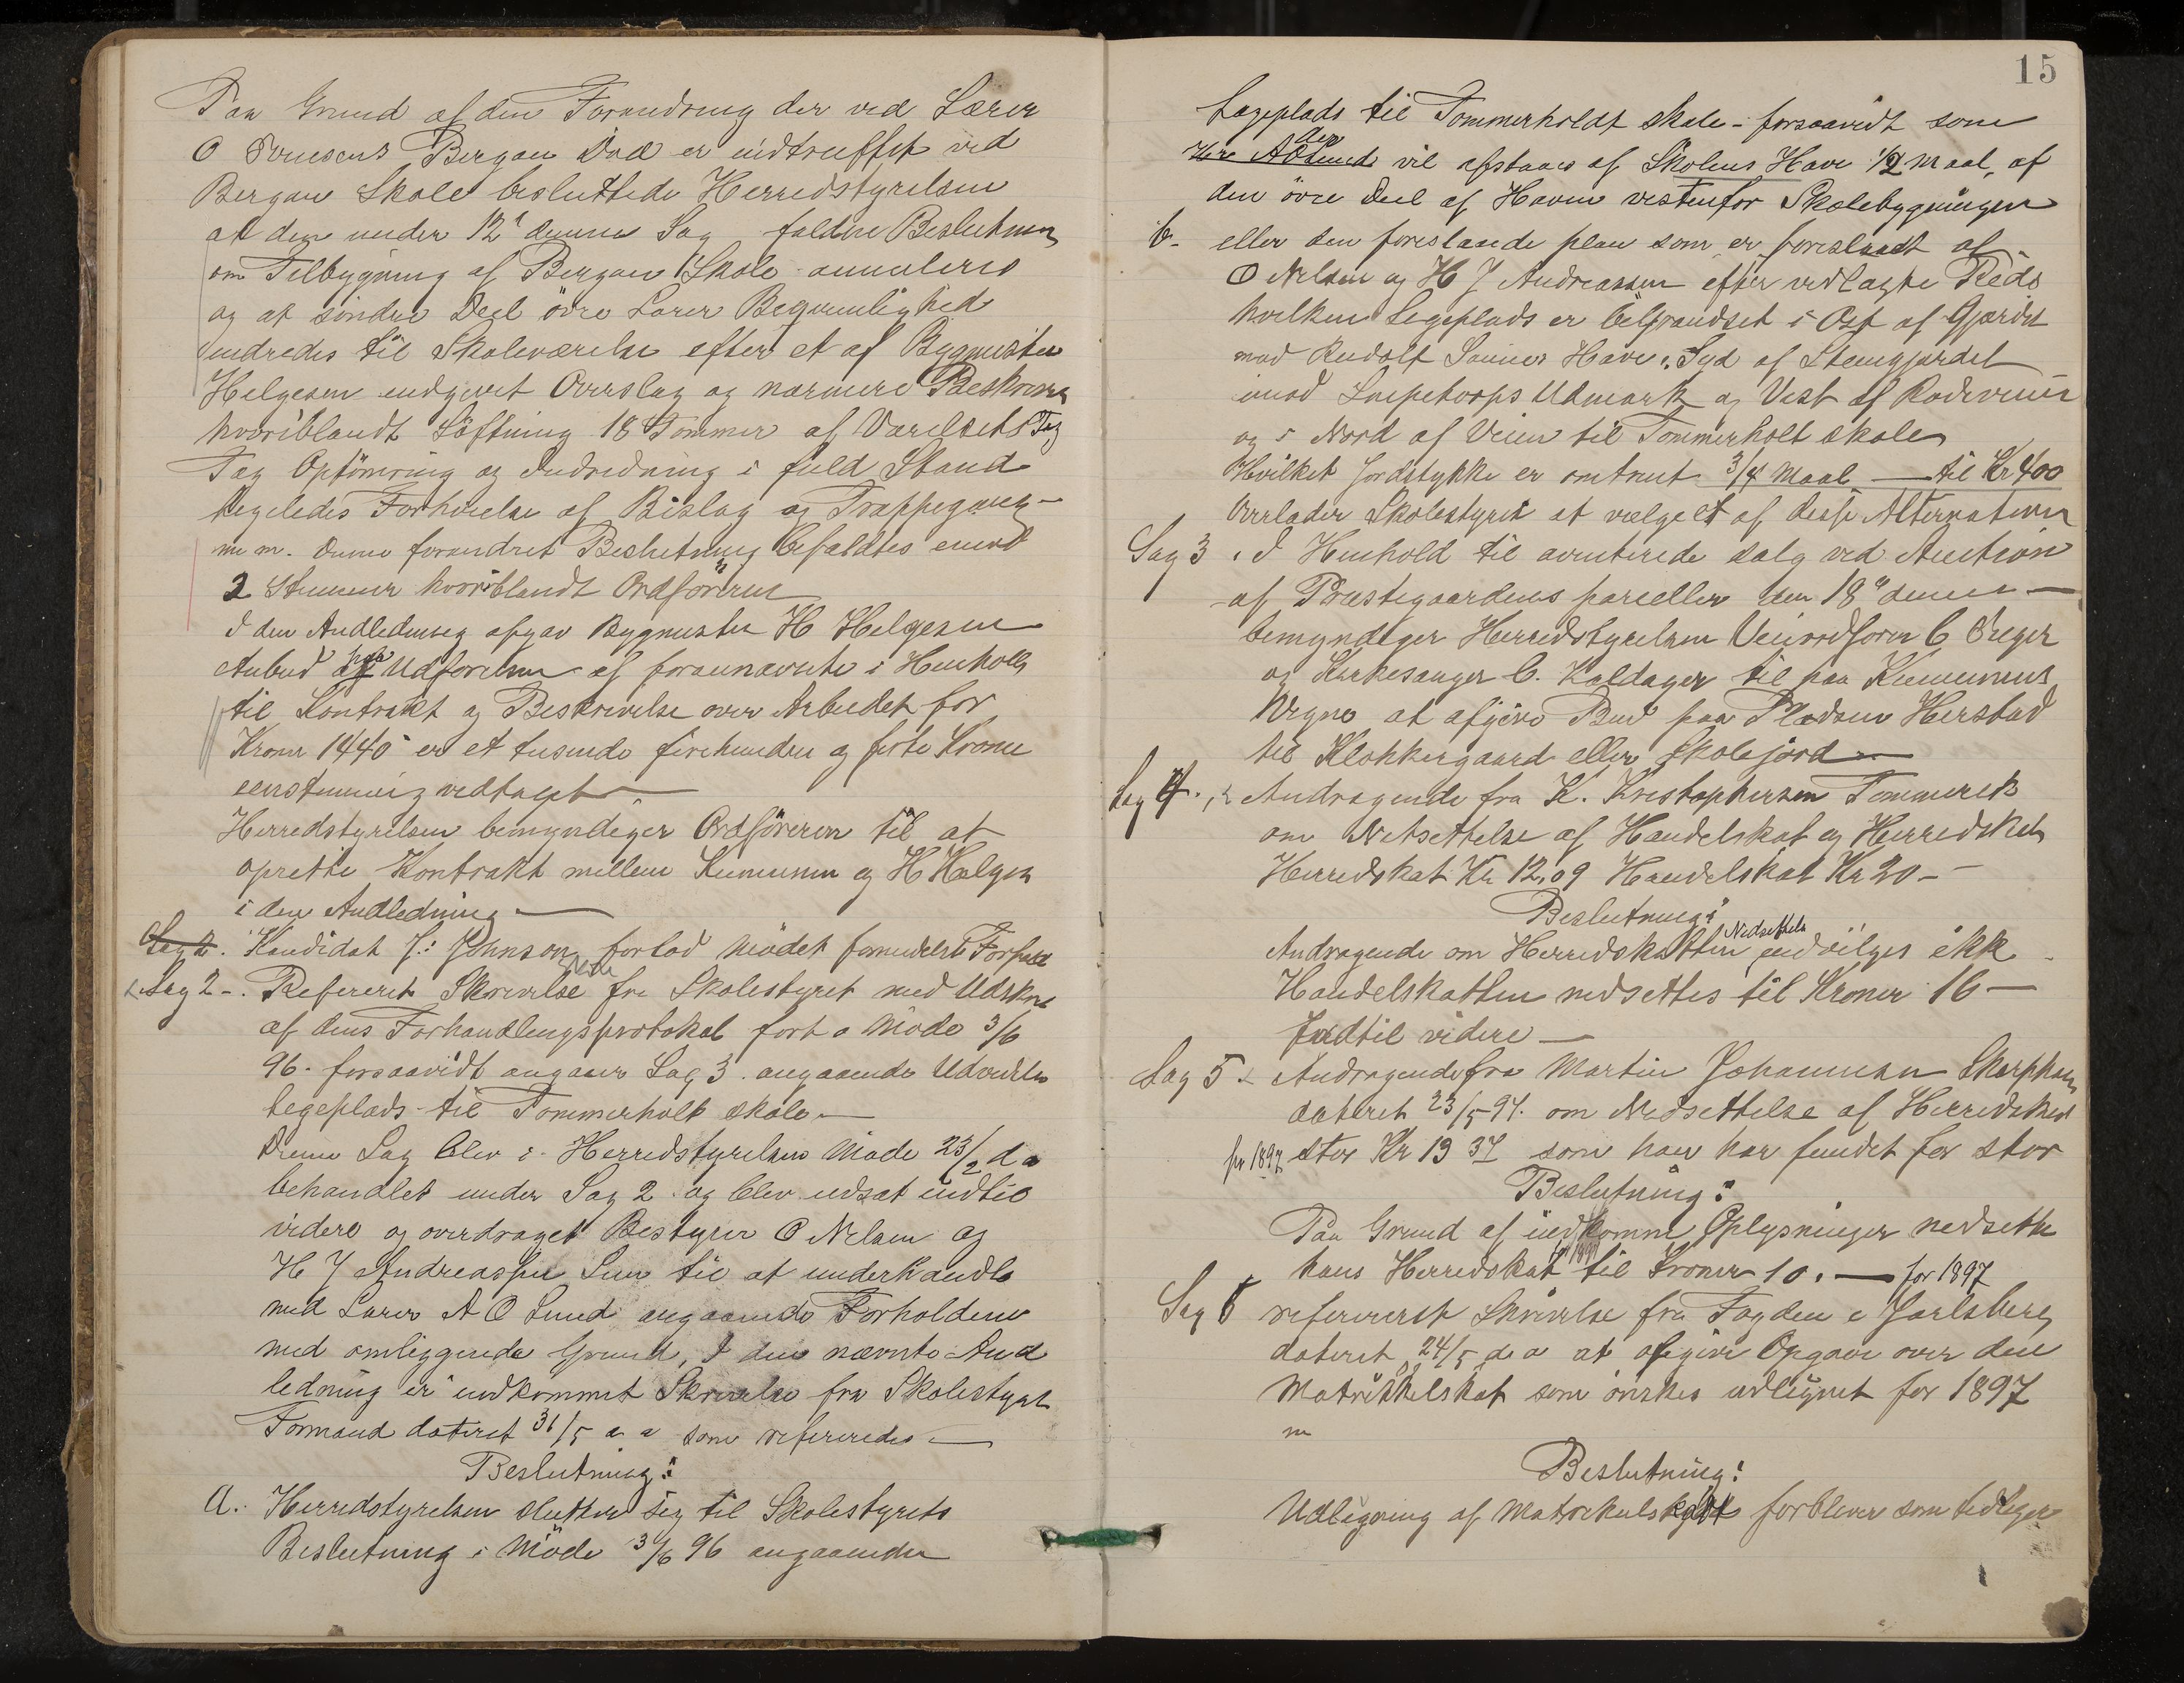 Paa Grund af den Forandring der ved Lærer
O Bergan Død er indtruffet ved
Bergan Skole besluttede Herredstyrelsen
at den under 12' denne Sag faldne Beslutning
om Tilbygning af Bergan Skole annuleres
og at søndre Deel øvre Lærer Beqvemlighed
indredes til Skoleværelse efter et af Bygmester
Helgesen indgivet Overslag og nærmere Beskrivn
hvoriblandt Løftning 18 Tommer af Værelsets Tag
Tag Optømring og Indredning i fuld Stand
ligeledes Forhøielse af Bislag og Trappegang -
m m. Denne forandret Beslutning bifaldtes imod
2 Stemmer hvoriblandt Ordføreren
I den Andledning afgav Bygmester H Helgesen
Anbud paa Udførelsen af forannævnte i Henhold
til Kontrakt og Beskrivelse over Arbeidet for
Kroner 1440 er et tusende firehundre og førti Kroner
eenstemmig vedtaget
Herredstyrelsen bemyndiger Ordføreren til at
oprette Kontrakt mellem Kumunen og H Helgesen
i den Andledning
Sag 2. Kandidat J: Johnson forlod Mødet formedelst Forfald
Sag 2 -. Refereret Skrivelse fra Skolestyret med Udskrift
af dens Forhandlingsprotokol fort a Møde 3/6
96. forsaavidt angaaer Sag 3 angaaende Udvidelse
legeplads til Tommerholt skole
Denne Sag blev i Herredstyrelsens Møde 23/2 d a
behandlet under Sag 2 og blev udsat indtil
videre og overdraget Bestyrer O Nelsen og
H J Andreassen Lun til at underhandle
med Lærer A O Lund angaaende Forholdene
med omliggende Grund, I den nævnte And
ledning er indkommet Skrivelse fra Skolestyret
Formand dateret 31/5 a a som refereredes
Beslutning:
A. Herredstyrelsen slutter sig til Skolestyrets
Beslutning i Møde 3/6 96 angaaende
15
Legeplads til Tommerholdt skole - forsaavidt som
der
vil afstaaes af Skolens Have 1/2 Maal, af
den øvre Deel af Haven vestenfor Skolebygningen
b. eller den foreslaaede plan som er foreslaaet af
O Nelsen og H J Andreassen efter vedlagte Rids
hvilken Legeplads er begrandset i Øst af Gjærdet
mod Rudolf Have, Syd af Stengjærdet
imod Udmark og Vest af Rodeveien
og i Nord af Veien til Tommerholt skole
Hvilket Jordstykke er omtrent 3/4 Maal - til Kr 400
Overlader Skolestyret at vælge et af disse Alternativer
Sag 3. I Henhold til averterede salg ved Auction
af Præstegaardens parceller den 18" dennes
bemyndiger Herredstyrelsen Veinordfører C
og Kirkesanger C. Kaldager til paa Kumunens
Vegne at afgive Bud paa Pladsen Herstad
til Klokkergaard eller Skolejord
Sag 4. Andragende fra K. Kristophersen Tommerek
om Netsettelse af Handelskat og Herredskat
Herredskat Kr 12,09 Handelskat Kr 20 -
Beslutning:
Nedsettelse
Andragende om Herredskatten indvilges ikke
Handelskatten nedsettes til Kroner 16 -
Indtil videre
Sag 5. Andragende fra Martin Johannesen
dateret 23/5 - 97. om Nedsettelse af Herredskat
for 1897 stor Kr 19 37 som han har fundet for stor
Beslutning:
Paa Grund af indkomne Oplysninger nedsette
hans Herredskat til Kroner 10. - for 1897
Sag 6 refereret Skrivelse fra Fogden i Jarlsberg
dateret 24/5 d a at afgive Opgave over den
Matrikkelskat som ønskes udlignet for 1897
Beslutning:
Udligning af Matrikulskat forbliver som tidligere